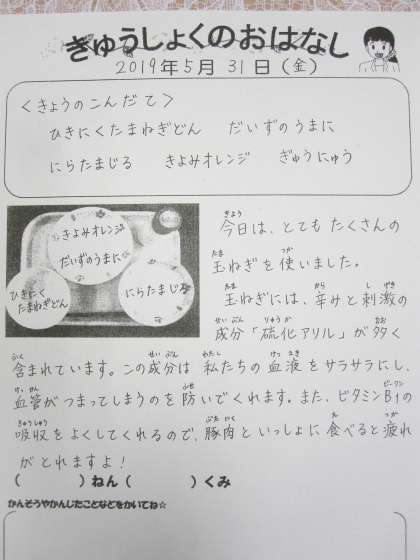 ぎゅうしょくのおはなし
2019年5月31日(金)
<きょうのこんだて>
ひきにくたまねぎどん だいずのうまに
にらたまじる きよみオレンジ ぎゅうにゅう
きよみオレンジ
だいずのうまに
ひきにく
たまねぎどん
にらたまじる
今日は、とてもたくさんの
玉ねぎを使いました。
玉ねぎには、辛みと刺激の
成分「硫化アリル」が多く
含まれています。この成分は私たちの血液をサラサラにし、
血管がつまってしまうのを防いでくれます。また、ビタミンB1の
吸収をよくしてくれるので、豚肉といっしょに食べると疲れ
がとれますよ!
( )ねん( )くみ
かんそうやかんじたことなどをかいてね☆